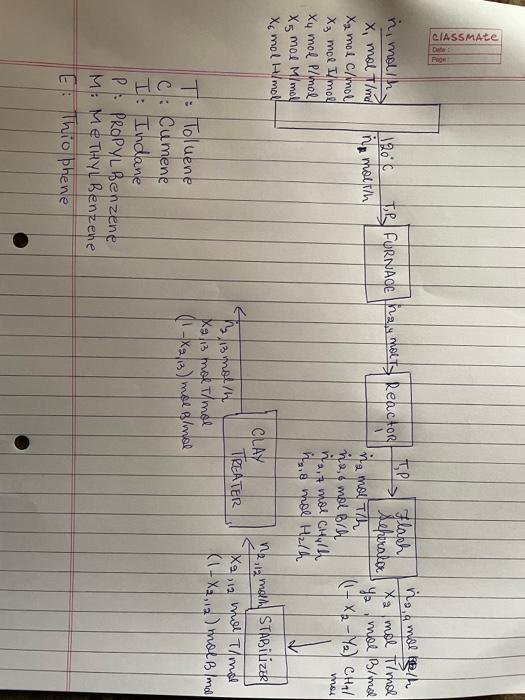 CLASSMATE
Date :
Page :
ṅ₁ mol/h
X₁ mol T/mol
X₂ mol C/mol
X₃ mol I/mol
X₄ mol P/mol
X₅ mol M/mol
X₆ mol H/mol
120°C
mol T/h
T,P
FURNACE
ṅ₂,₄ mol T
Reactor
1
T,P
ṅ₂ mol T/h
ṅ₂,₆ mol B/h
ṅ₂,₇ mol CH₄/h
ṅ₂,₈ mol H₂/h
Flash
Seperator
ṅ₂,₉ mol /h
X₂, mol T/mol
Y₂, mol B/mol
(1-X₂-Y₂) CH₄/
mol
STABILIZER
ṅ₂,₁₂ mol/h
X₂,₁₂ mol T/mol
(1-X₂,₁₂) mol B/mol
CLAY
TREATER
ṅ₂,₁₃ mol/h
X₂,₁₃ mol T/mol
(1-X₂,₁₃) mol B/mol
T: Toluene
C: Cumene
I: Indane
P: PROPYL Benzene
M: METHYL Benzene
E: Thiophene